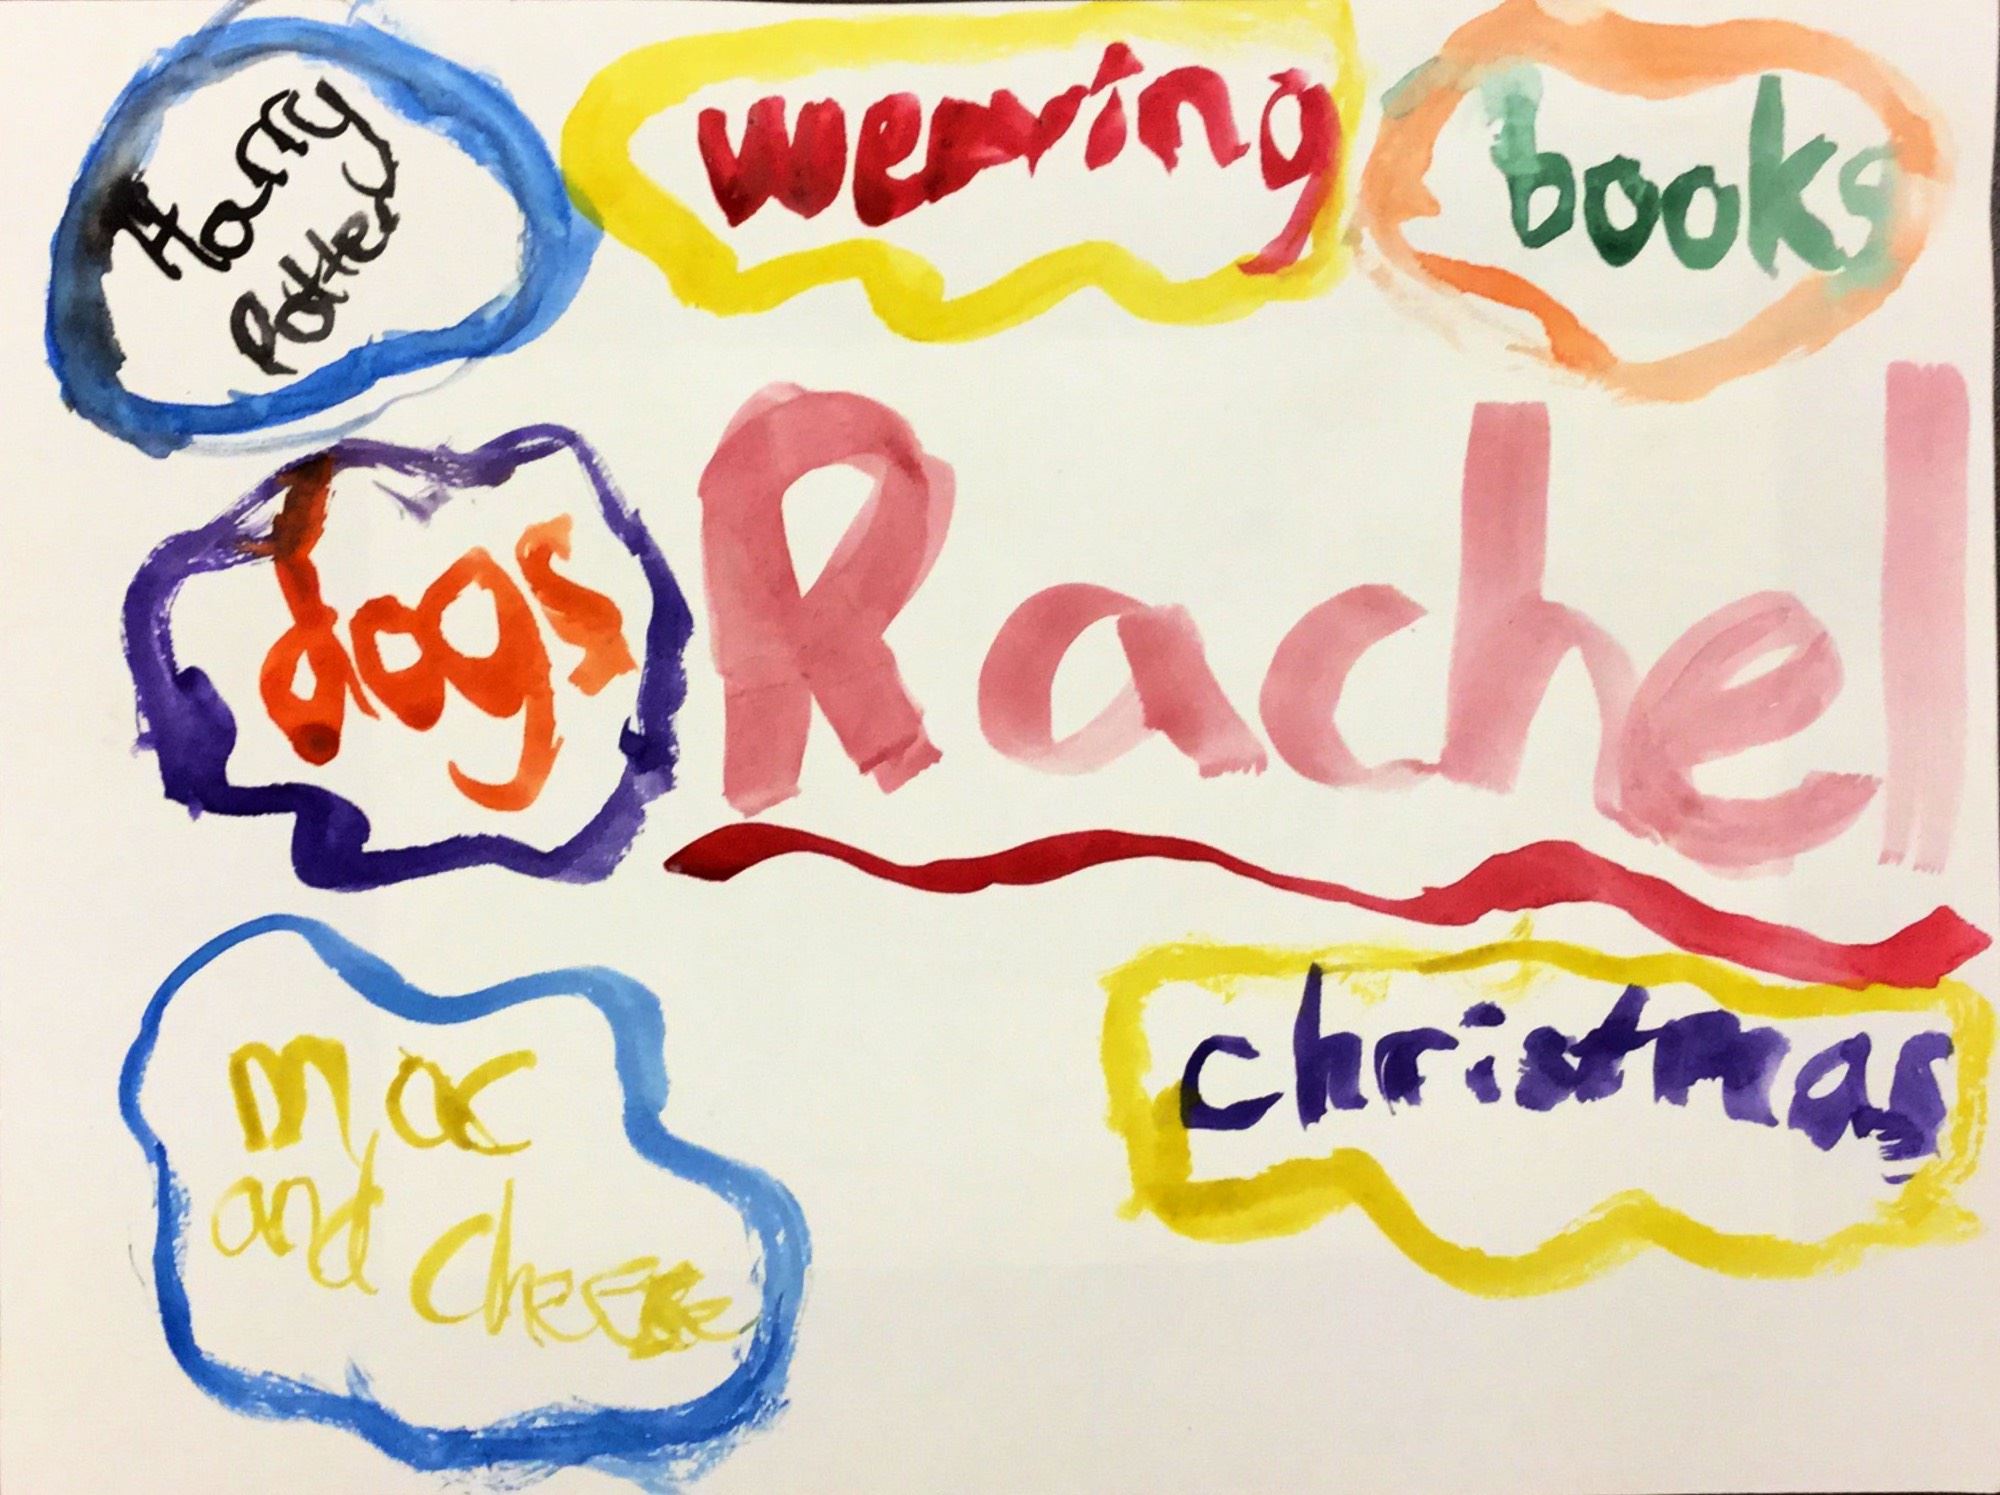 Harry
Potter
weaving
books
dogs
Rachel
mac
and cheese
christmas